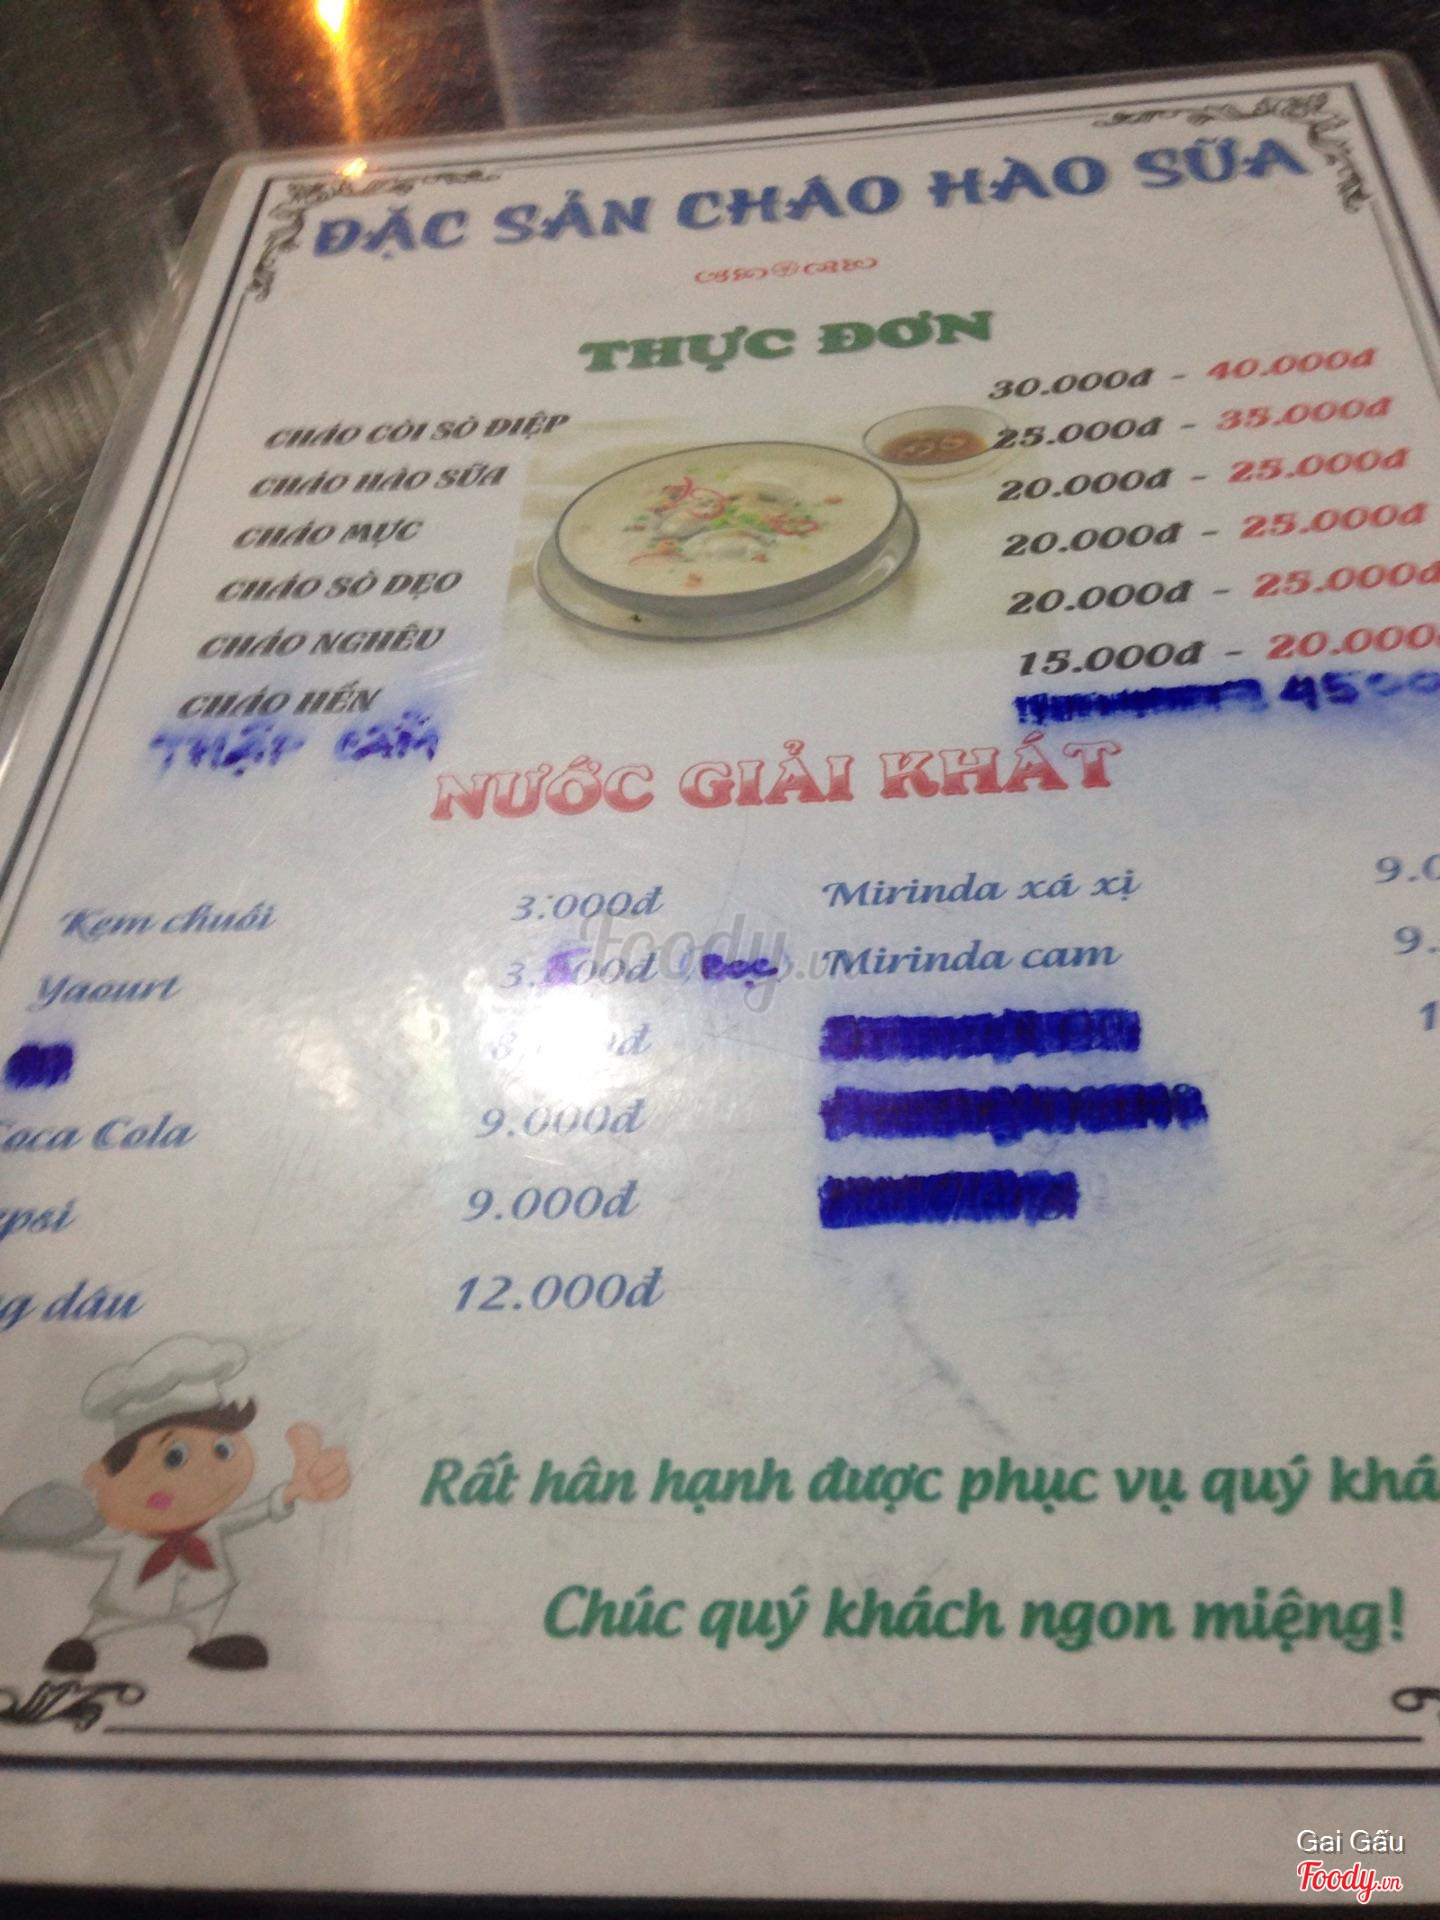 ĐẶC SẢN CHÁO HÀO SỮA
THỰC ĐƠN
CHÁO CÒI SÒ ĐIỆP 30.000đ - 40.000đ
CHÁO HÀO SỮA 25.000đ - 35.000đ
CHÁO MỰC 20.000đ - 25.000đ
CHÁO SÒ DẸO 20.000đ - 25.000đ
CHÁO NGHÊU 20.000đ - 25.000đ
CHÁO HẾN 15.000đ - 20.000
THẬP CẨM 4500
NƯỚC GIẢI KHÁT
Kem chuối 3.000đ Mirinda xá xị 9.0
Yaourt 3. 00đ (Bọc) Mirinda cam 9.
8. đ 1
Coca Cola 9.000đ
epsi 9.000đ
g dâu 12.000đ
Rất hân hạnh được phục vụ quý khá
Chúc quý khách ngon miệng!
Foody.vn
Gai Gấu
Foody.vn